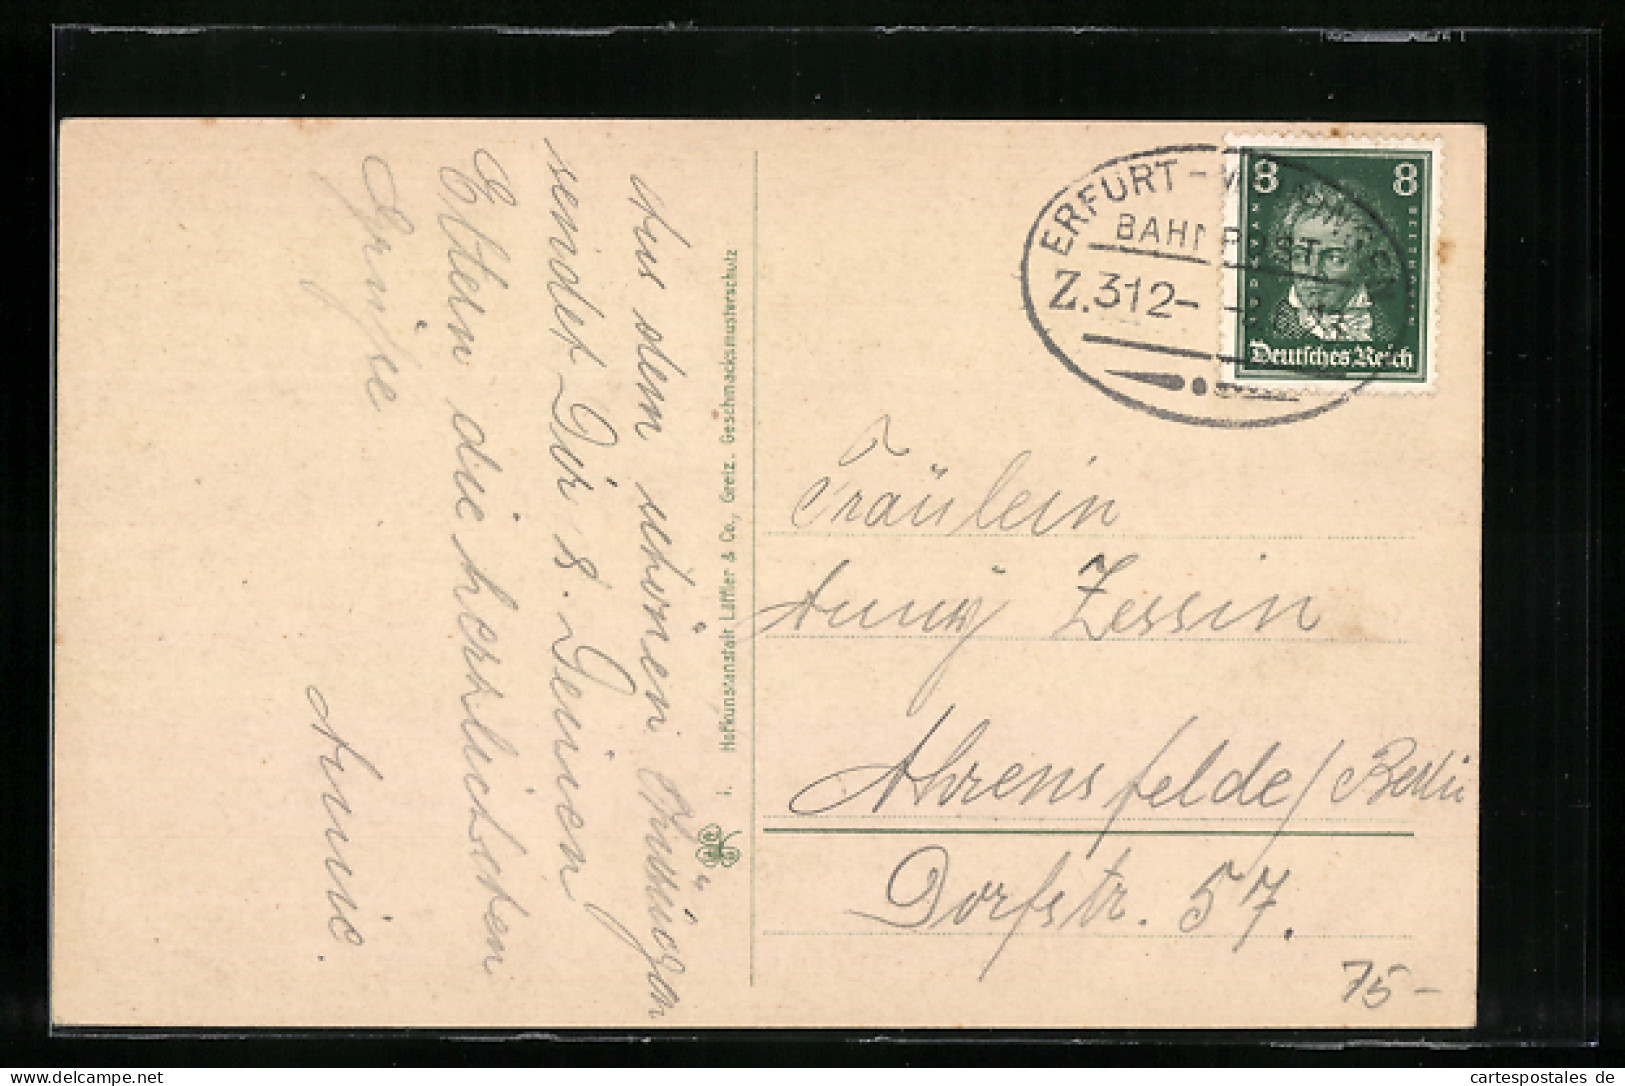 Aus dem schönen Thüringen
sendet Dir u. Deinen
Eltern die herzlichsten
Grüße
Annie.
i. Hofkunstanstalt Löffler & Co., Greiz. Geschmacksmusterschutz
ERFURT -
BAHNPOST
Z.312-
8 8
Deutsches Reich
Fräulein
Anny Zessin
Ahrensfelde / Berlin
Dorfstr. 57.
75-
delcampe.net
cartespostales de